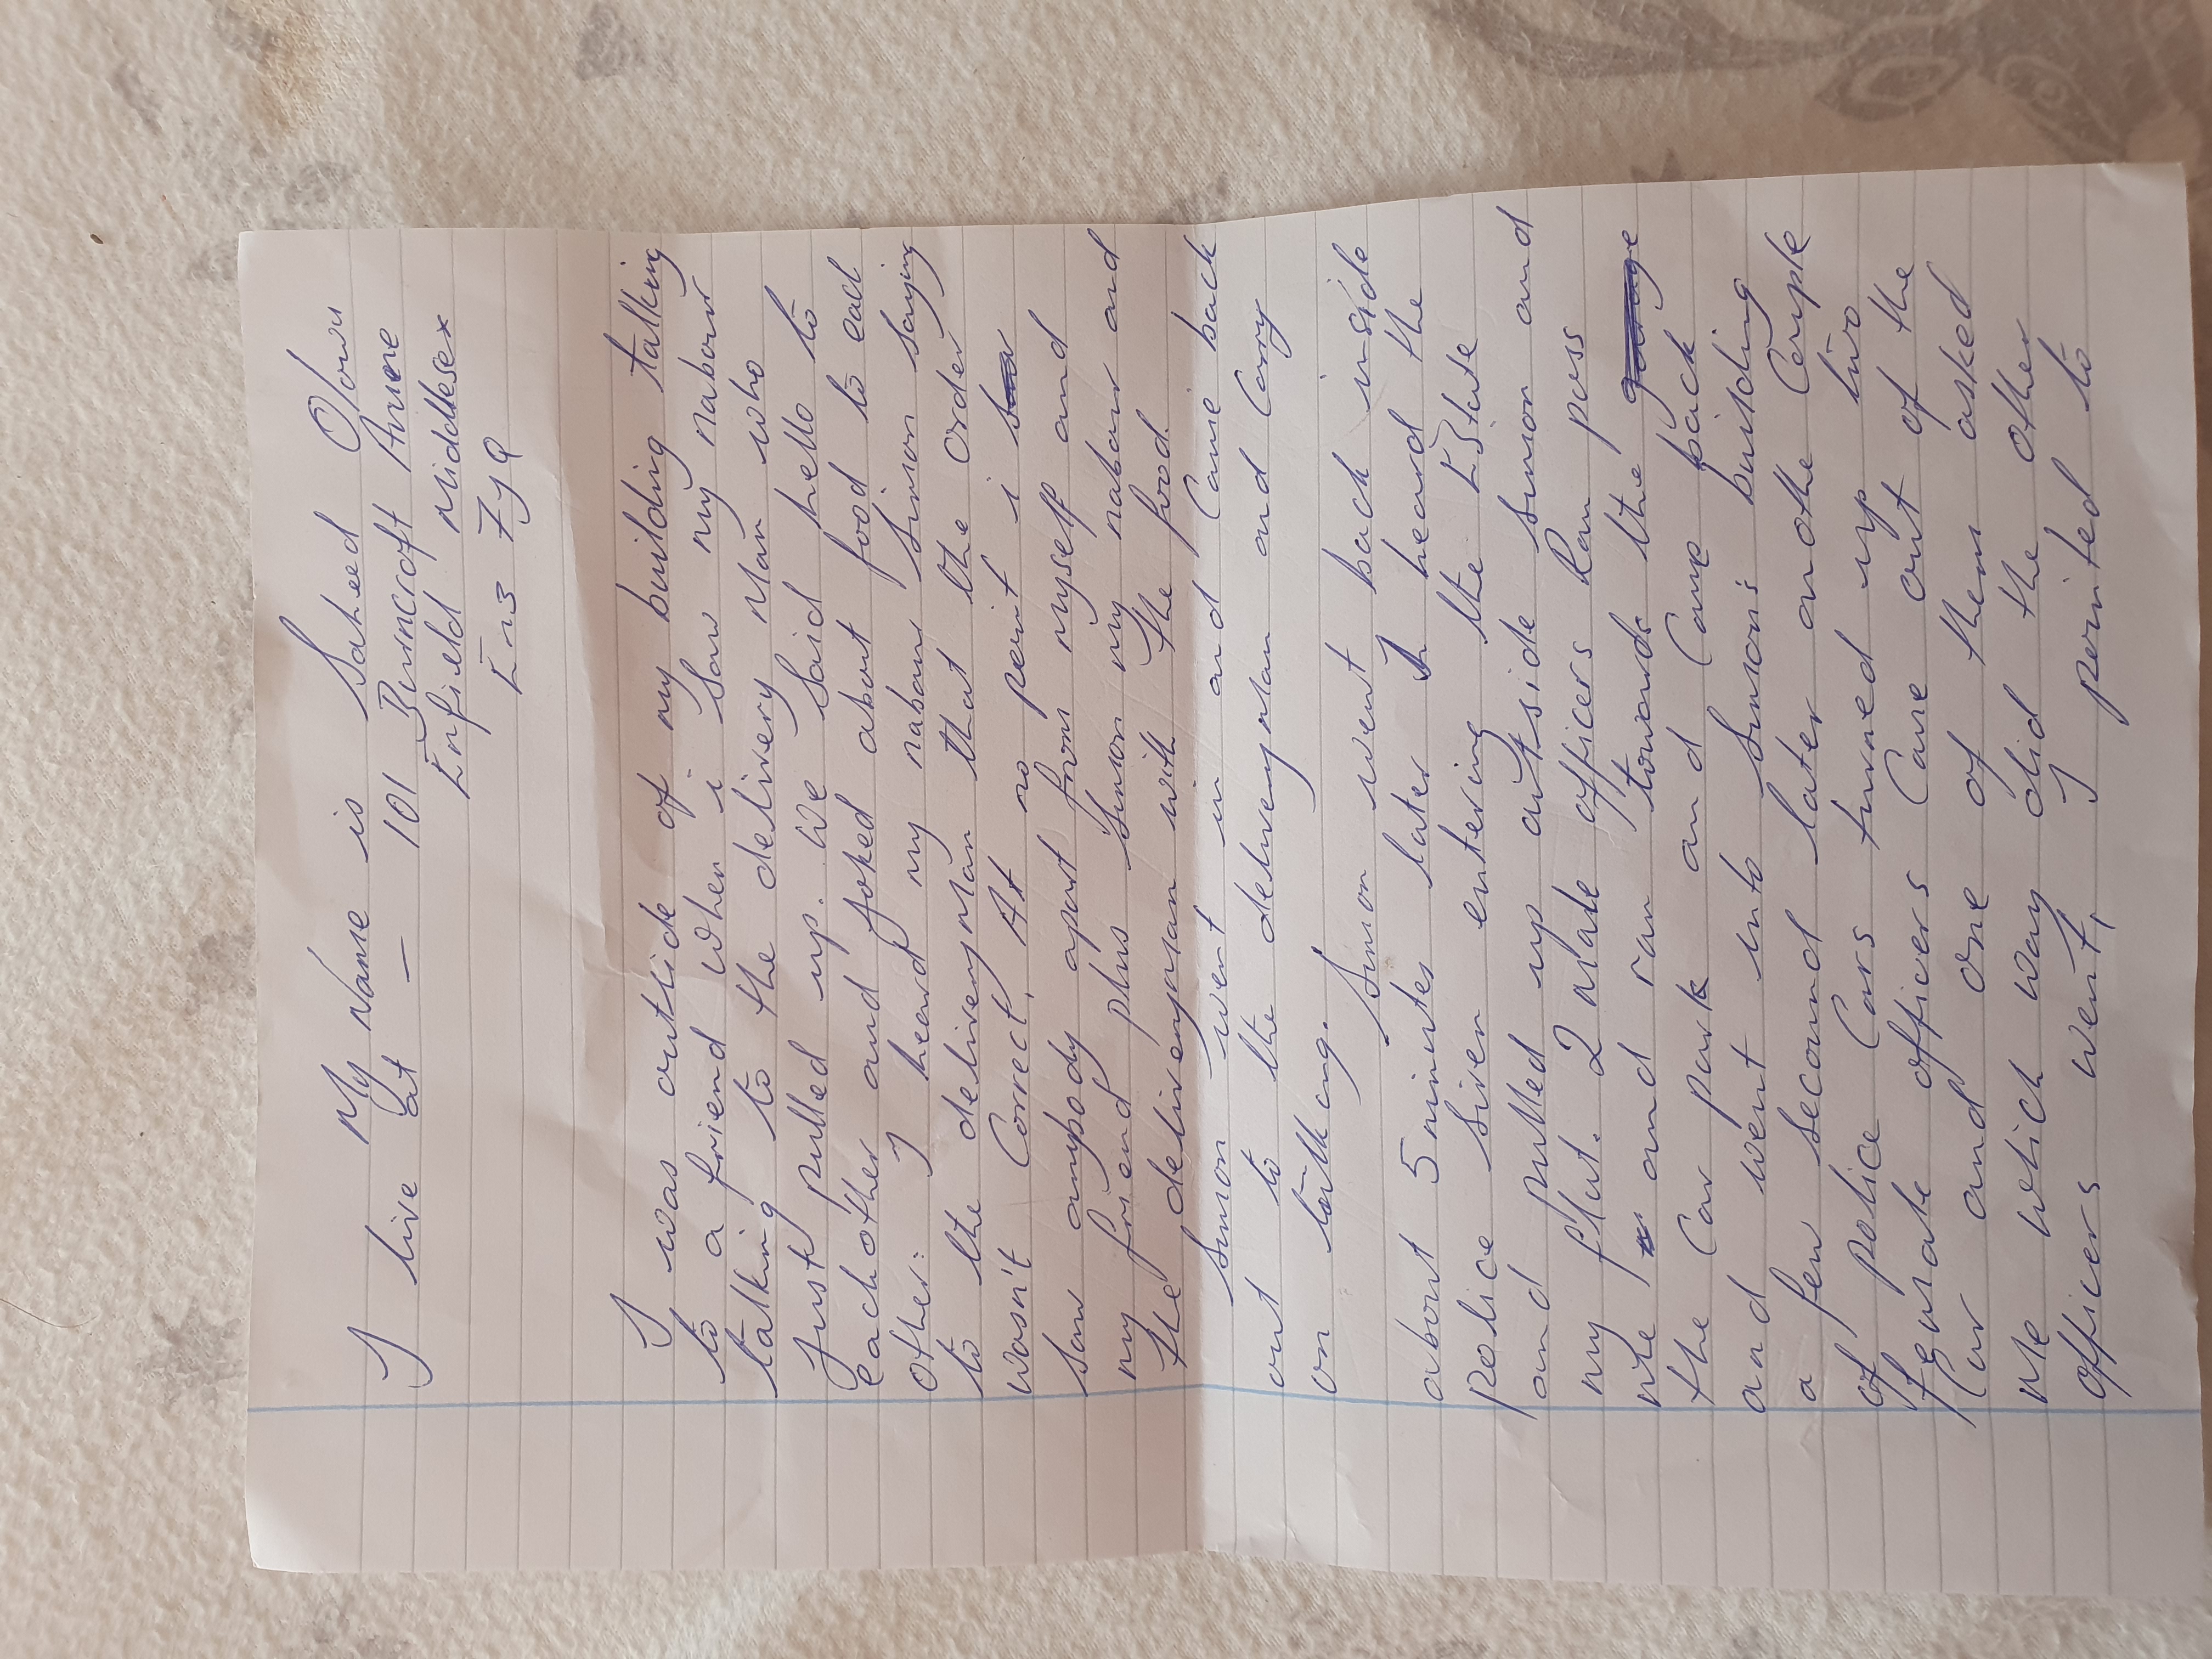 My Name is Saheed Olowu
I live at - 101 Burncroft Avnere
Enfield middlesex
En3 7JQ
I was outside of my building talking
to a friend when i saw my nabour
talking to the delivery man who
Just pulled up. We said hello to
each other and joked about food to each
other. I heard my nabour simon saying
to the deliveryman that the order
wasn't correct. At no point i
saw anybody apart from myself and
my friend plus simon my nabour and
the deliveryman with the food.
simon went in and came back
out to the deliveryman and carry
on talking. Simon went back inside
about 5 minutes later I heard the
police siren entering the Estate
and pulled up outside simon and
my flat. 2 male officers Ran pass
me and ran towards the
the car park and came back
and went into simons building
a few secound later anothe Couple
of police cars turned up two
female officers came out of the
car and one of them asked
me which way did the other
officers went, I pointed to